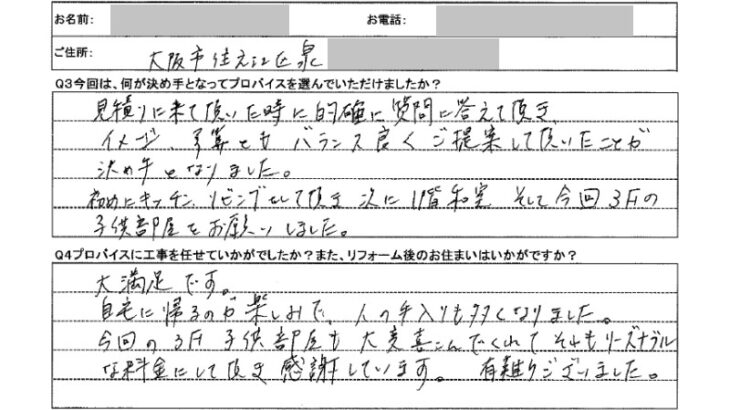 お名前: お電話:
ご住所: 大阪市住之江区泉
Q3今回は、何が決め手となってプロバイスを選んでいただけましたか?
見積りに来て頂いた時に的確に質問に答えて頂き、
イメージ、予算ともバランス良くご提案して頂いたことが
決め手となりました。
初めにキッチン、リビングをして頂き 次に1階和室 そして今回3Fの
子供部屋をお願いしました。
Q4プロバイスに工事を任せていかがでしたか?また、リフォーム後のお住まいはいかがですか?
大満足です。
自宅に帰るのが楽しみで、人の出入りも多くなりました。
今回の3F 子供部屋も大変喜こんでくれて それもリーズナブル
な料金にして頂き 感謝しています。 有難うございました。